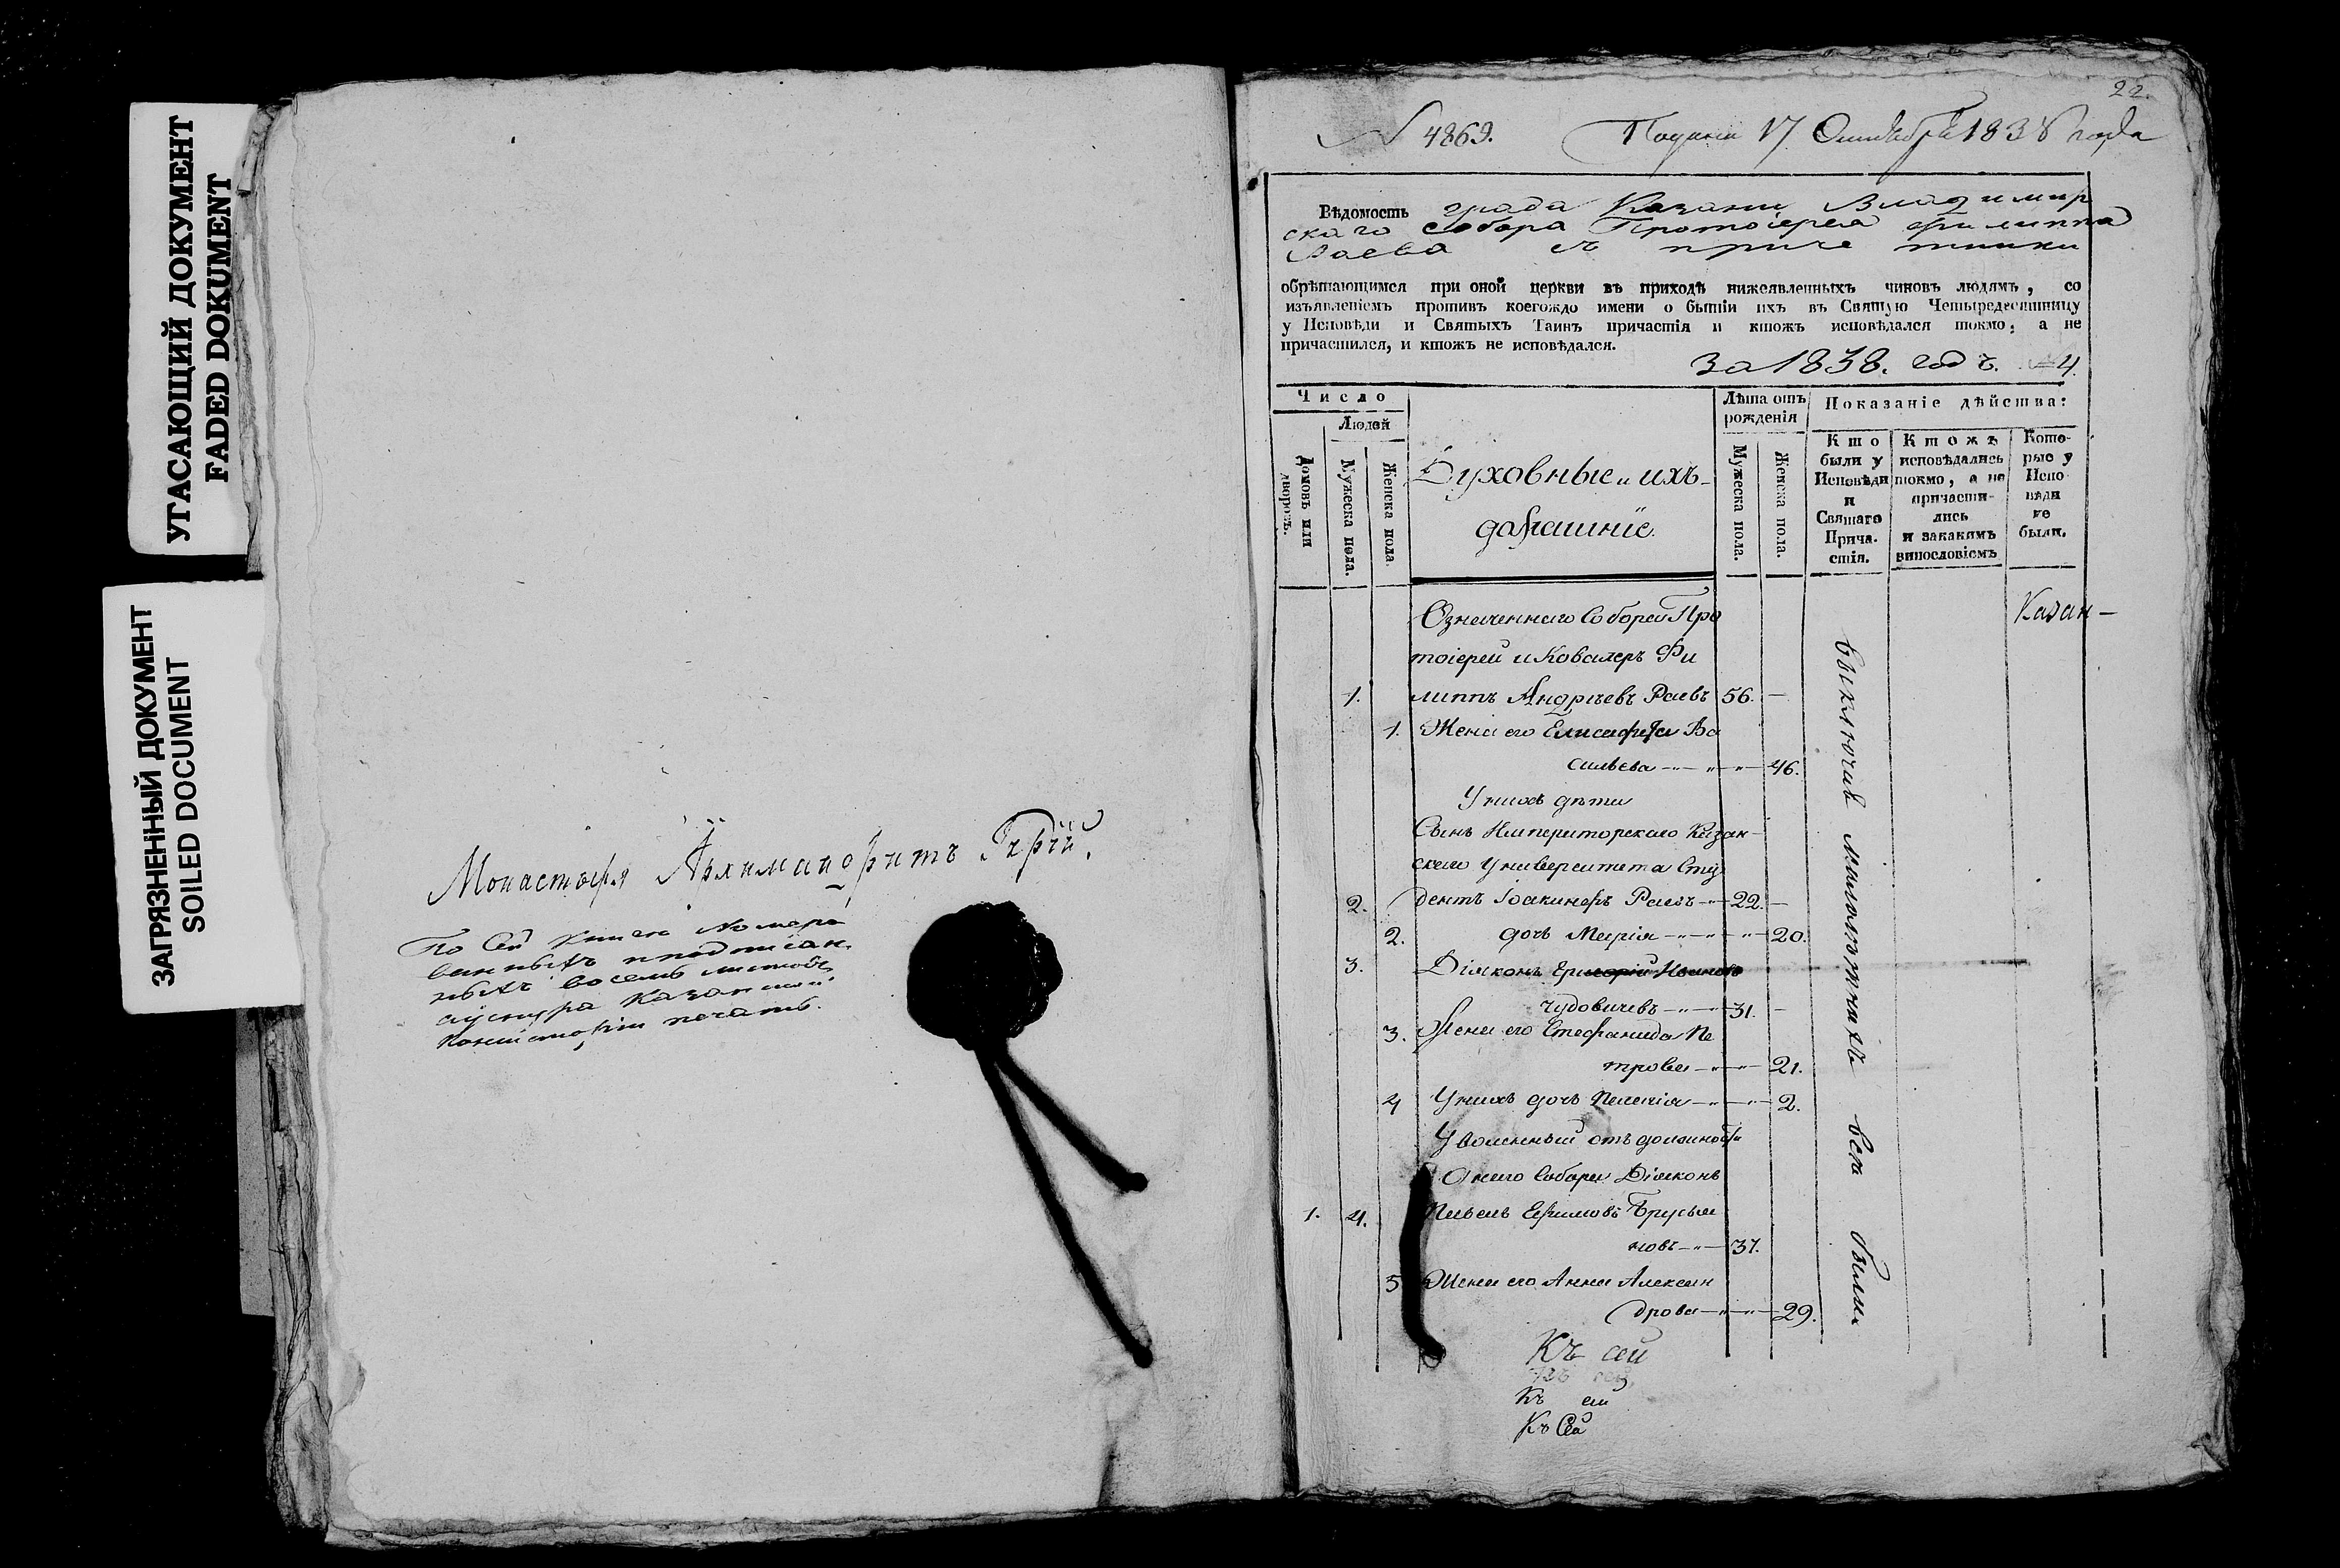 УГАСАЮЩИЙ ДОКУМЕНТ
FADED DOKUMENT
ЗАГРЯЗНЕННЫЙ ДОКУМЕНТ
SOILED DOCUMENT
Монастыря Архимандритъ Гурій.
По сей книге номеро
ванныхъ и подписан
ныхъ восемь листовъ
Казанской
Консисторіи печать.
22.
N 4869. 17 Октября 1838 года
Вѣдомость града Казани Владимир
скаго собора Протоіерея Филиппа
Раева съ причетники
обрѣтающимся при оной церкви въ приходѣ нижеявленныхъ чиновъ людямъ, со
изъявленіемъ противъ коегождо имени о бытіи ихъ въ Святую Четыредесятницу
у Исповѣди и Святыхъ Таинъ причастія и ктожъ исповѣдался токмо, а не
причастился, и ктожъ не исповѣдался.
За 1838. годъ. 4.
Число
Людей
Домовъ или дворовъ.
Мужеска пола.
Женска пола
Духовные и ихъ
домашніе.
Лѣта отъ
рожденія
Мужеска пола.
Женска пола.
Показаніе дѣйства:
Кто
были у
Исповѣди
и
Святаго
Прича-
стія.
Ктожъ
исповѣдались
токмо, а не
причасти-
лись
и закакимъ
винословіемъ
Кото-
рые у
Испо-
вѣди
не
были.
Казан-
Означеннаго Собора Про
тоіерей и Кавалеръ Фи
1. липпъ Андреевъ Раевъ 56. —
1. Жена его Елисавета Ва
сильева 46.
У нихъ дети
Сынъ Императорскаго Казан-
скаго Университета Сту
2. дентъ Іоакинфъ Раевъ 22. —
2. дочь Марія 20.
3. Діаконъ Григорій Ивановъ
Чудовичевъ 31. —
3. Жена его Стефанида Пе
трова 21.
4 У нихъ дочь Пелагія 2.
Уволенный отъ должности
Онаго Собора Діаконъ
1. 4. Павелъ Ефимовъ Брусья
новъ 37.
5 Жена его Анна Алексан
дрова 29.
выключая малолетнихъ все были
Къ сей
Къ сей
Къ Сей